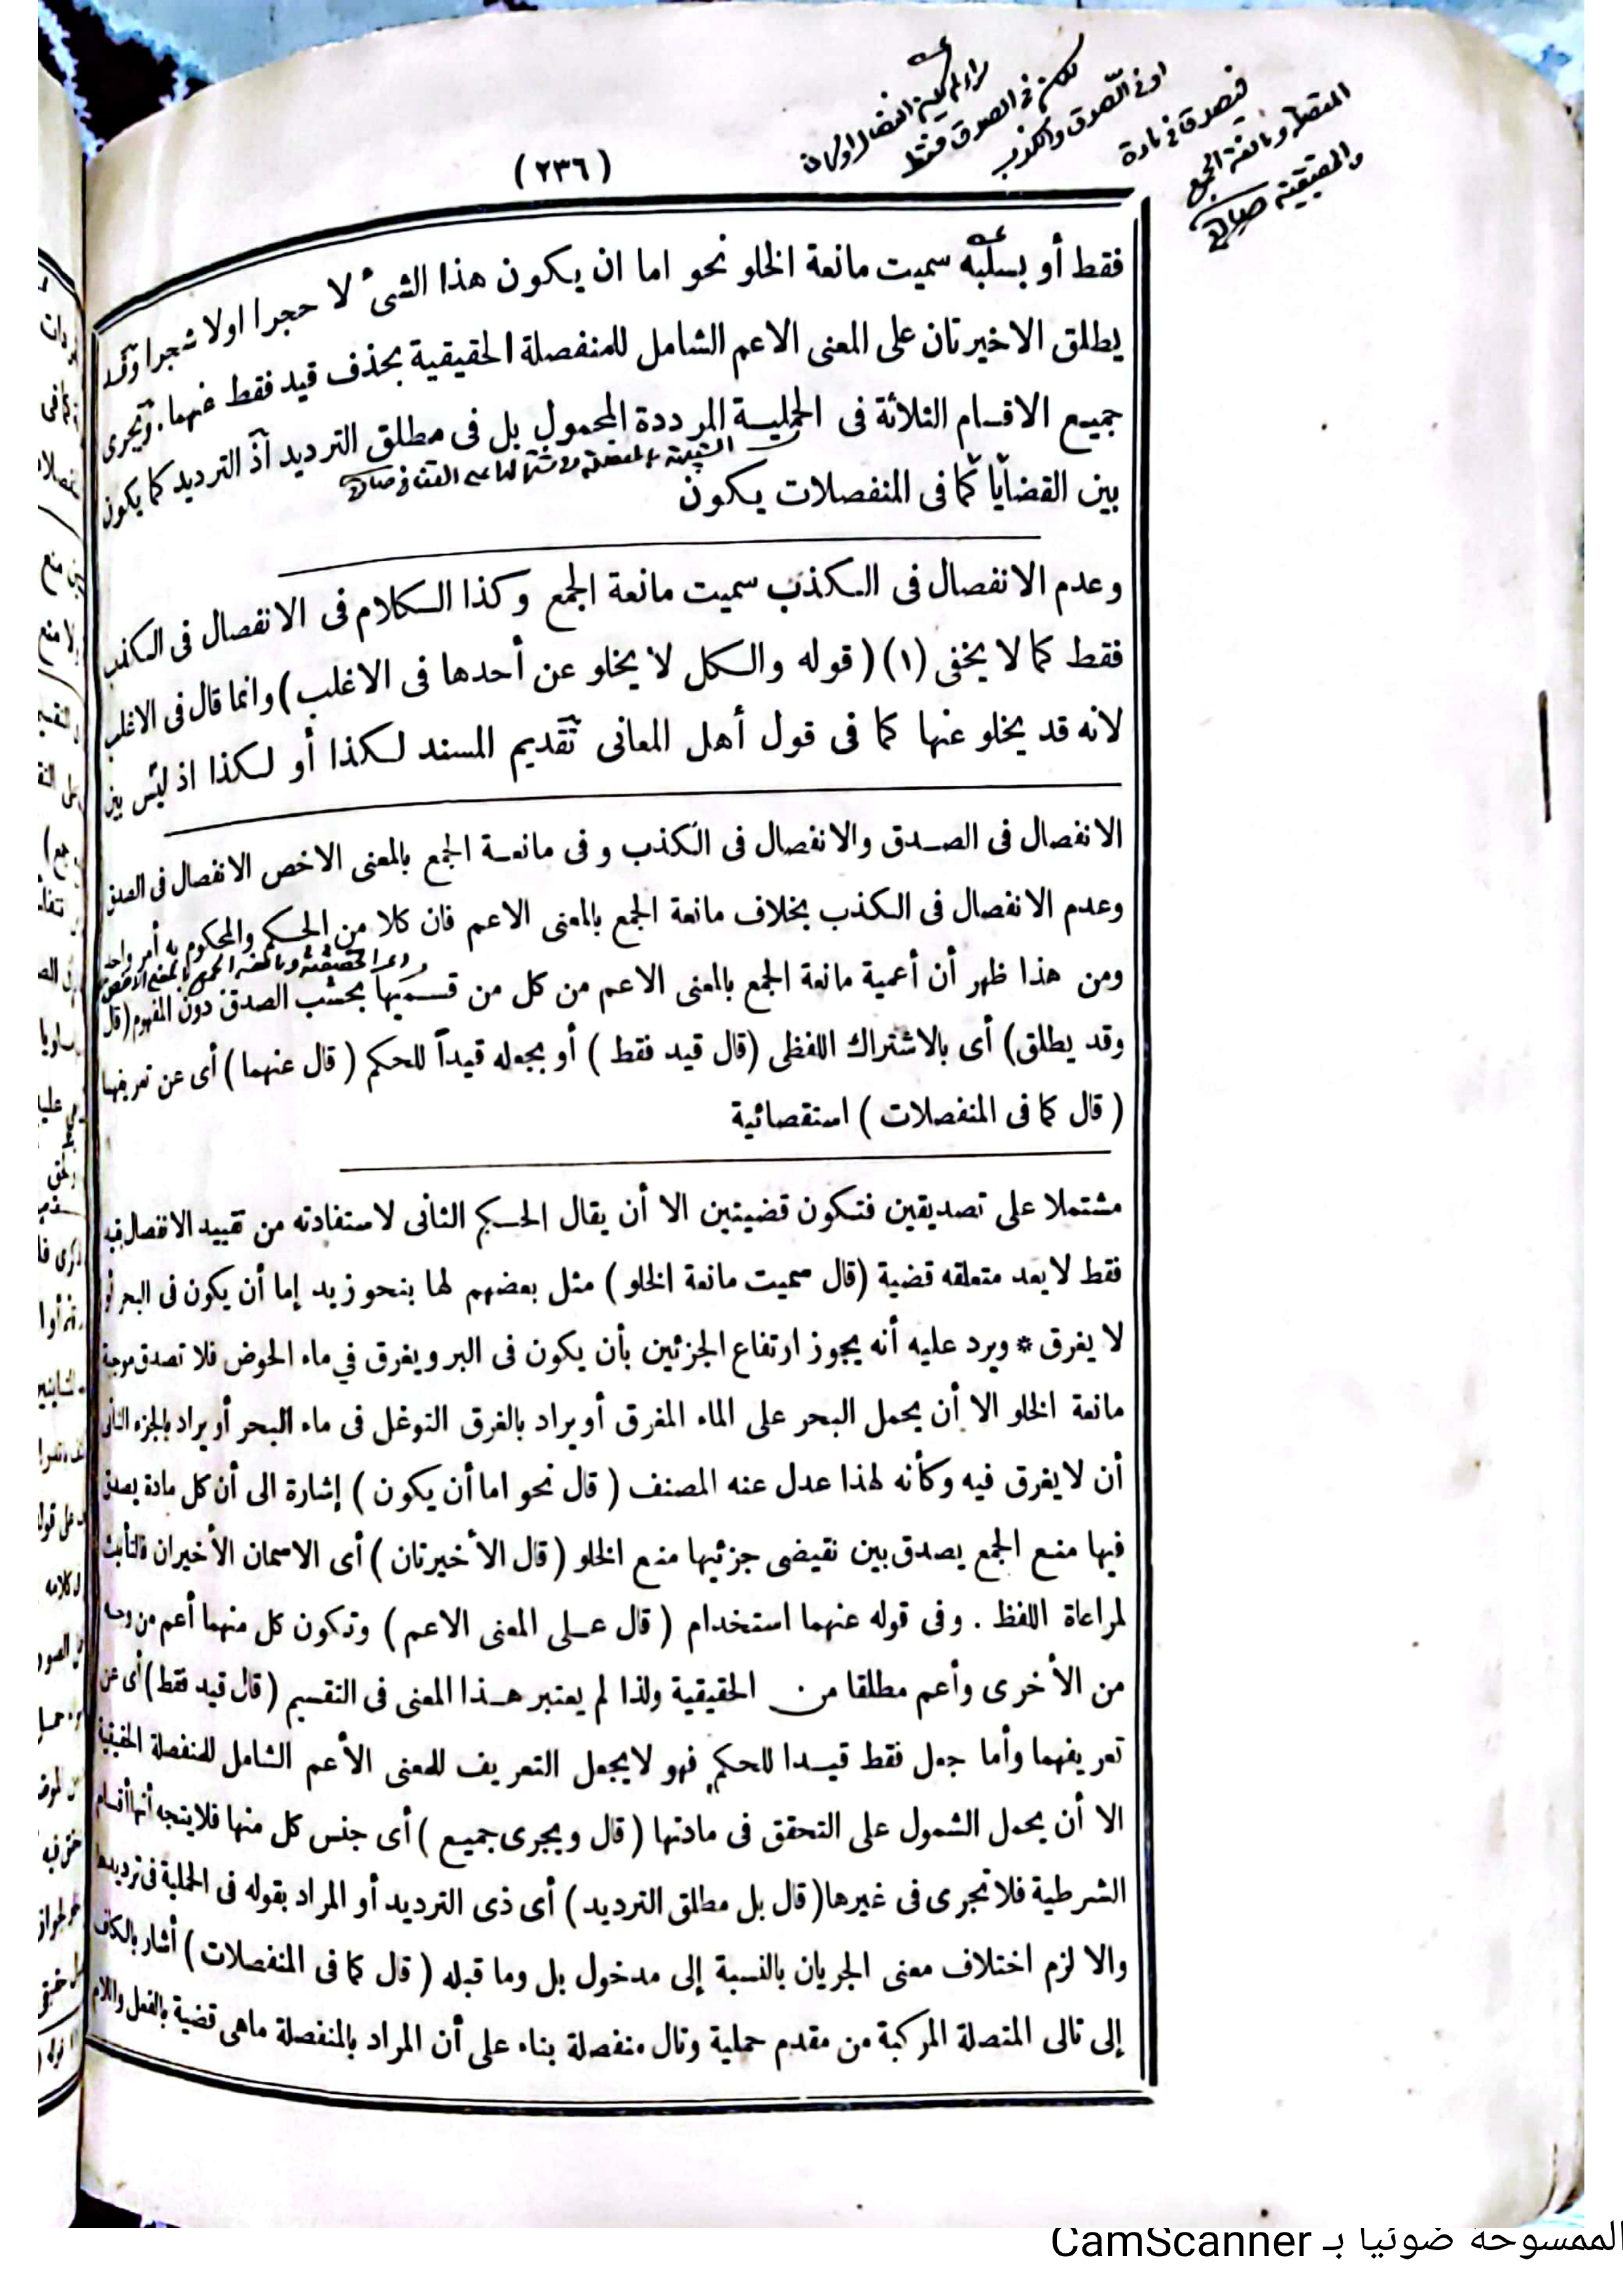 (٢٣٦)
فقط أو بسلبه سميت مانعة الخلو نحو اما ان يكون هذا الشئ لا حجرا اولا شجرا وقد
يطلق الاخيرتان على المعنى الاعم الشامل للمنفصلة الحقيقية بحذف قيد فقط عنهما. ويجرى
جميع الاقسام الثلاثة فى الحملية المرددة المحمول بل فى مطلق الترديد اذ الترديد كما يكون
بين القضايا كما فى المنفصلات يكون
وعدم الانفصال فى الكذب سميت مانعة الجمع وكذا الكلام فى الانفصال فى الكذب
فقط كما لا يخفى (١) ( قوله والكل لا يخلو عن أحدها فى الاغلب) وانما قال فى الاغلب
لانه قد يخلو عنها كما فى قول أهل المعانى تقديم المسند لكذا أو لكذا اذ ليس بين
الانفصال فى الصدق والانفصال فى الكذب وفى مانعة الجمع بالمعنى الاخص الانفصال فى الصدق
وعدم الانفصال فى الكذب بخلاف مانعة الجمع بالمعنى الاعم فان كلا من الحكم والمحكوم به أمر واحد
ومن هذا ظهر أن أعمية مانعة الجمع بالمعنى الاعم من كل من قسميها بحسب الصدق دون المفهوم (قال
وقد يطلق) أى بالاشتراك اللفظى (قال قيد فقط ) أو بجعله قيداً للحكم ( قال عنهما ) أى عن تعريفها
( قال كما فى المنفصلات ) استقصائية
مشتملا على تصديقين فتكون قضيتين الا أن يقال الحكم الثانى لاستفادته من تقييد الانفصال فيه
فقط لا يعد متعلقه قضية (قال سميت مانعة الخلو ) مثل بعضهم لها بنحو زيد إما أن يكون فى البحر أو
لا يغرق * ويرد عليه أنه يجوز ارتفاع الجزئين بأن يكون فى البر ويغرق في ماء الحوض فلا تصدق موجبة
مانعة الخلو الا أن يحمل البحر على الماء المغرق أو يراد بالغرق التوغل فى ماء البحر أو يراد بالجزء الثانى
أن لا يغرق فيه وكأنه لهذا عدل عنه المصنف ( قال نحو اما أن يكون ) إشارة الى أن كل مادة يصدق
فيها منع الجمع يصدق بين نقيضى جزئيها منع الخلو ( قال الأخيرتان ) أى الاسمان الأخيران فالتأنيث
لمراعاة اللفظ . وفى قوله عنهما استخدام ( قال على المعنى الاعم ) وتكون كل منهما أعم من وجه
من الأخرى وأعم مطلقا من الحقيقية ولذا لم يعتبر هذا المعنى فى التقسيم ( قال قيد فقط) أى عن
تعريفهما وأما جعل فقط قيدا للحكم فهو لا يجعل التعريف للمعنى الأعم الشامل للمنفصلة الحقيقية
الا أن يحمل الشمول على التحقق فى مادتها ( قال ويجرى جميع ) أى جنس كل منها فلا يتجه أنها أقسام
الشرطية فلا تجرى فى غيرها( قال بل مطلق الترديد ) أى ذى الترديد أو المراد بقوله فى الحملية فى ترديدها
والا لزم اختلاف معنى الجريان بالنسبة إلى مدخول بل وما قبله ( قال كما فى المنفصلات ) أشار بالكاف
إلى تالى المتصلة المركبة من مقدم حملية وتال منفصلة بناء على أن المراد بالمنفصلة ماهى قضية بالفعل واللام
الممسوحة ضوئيا بـ CamScanner